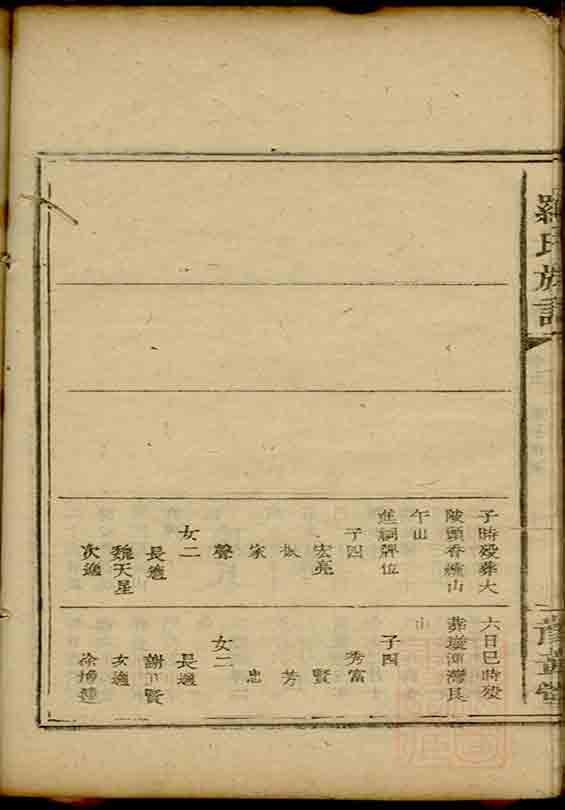 羅氏族譜
子時歿葬大
陂頭香爐山
午山
進祠牌位
子四
宏亮
家
聲
女二
長適
魏天星
次適
六日巳時歿
葬 灣艮
山
子四
秀富
賢
芳
忠
女二
長適
謝 賢
次適
徐 連